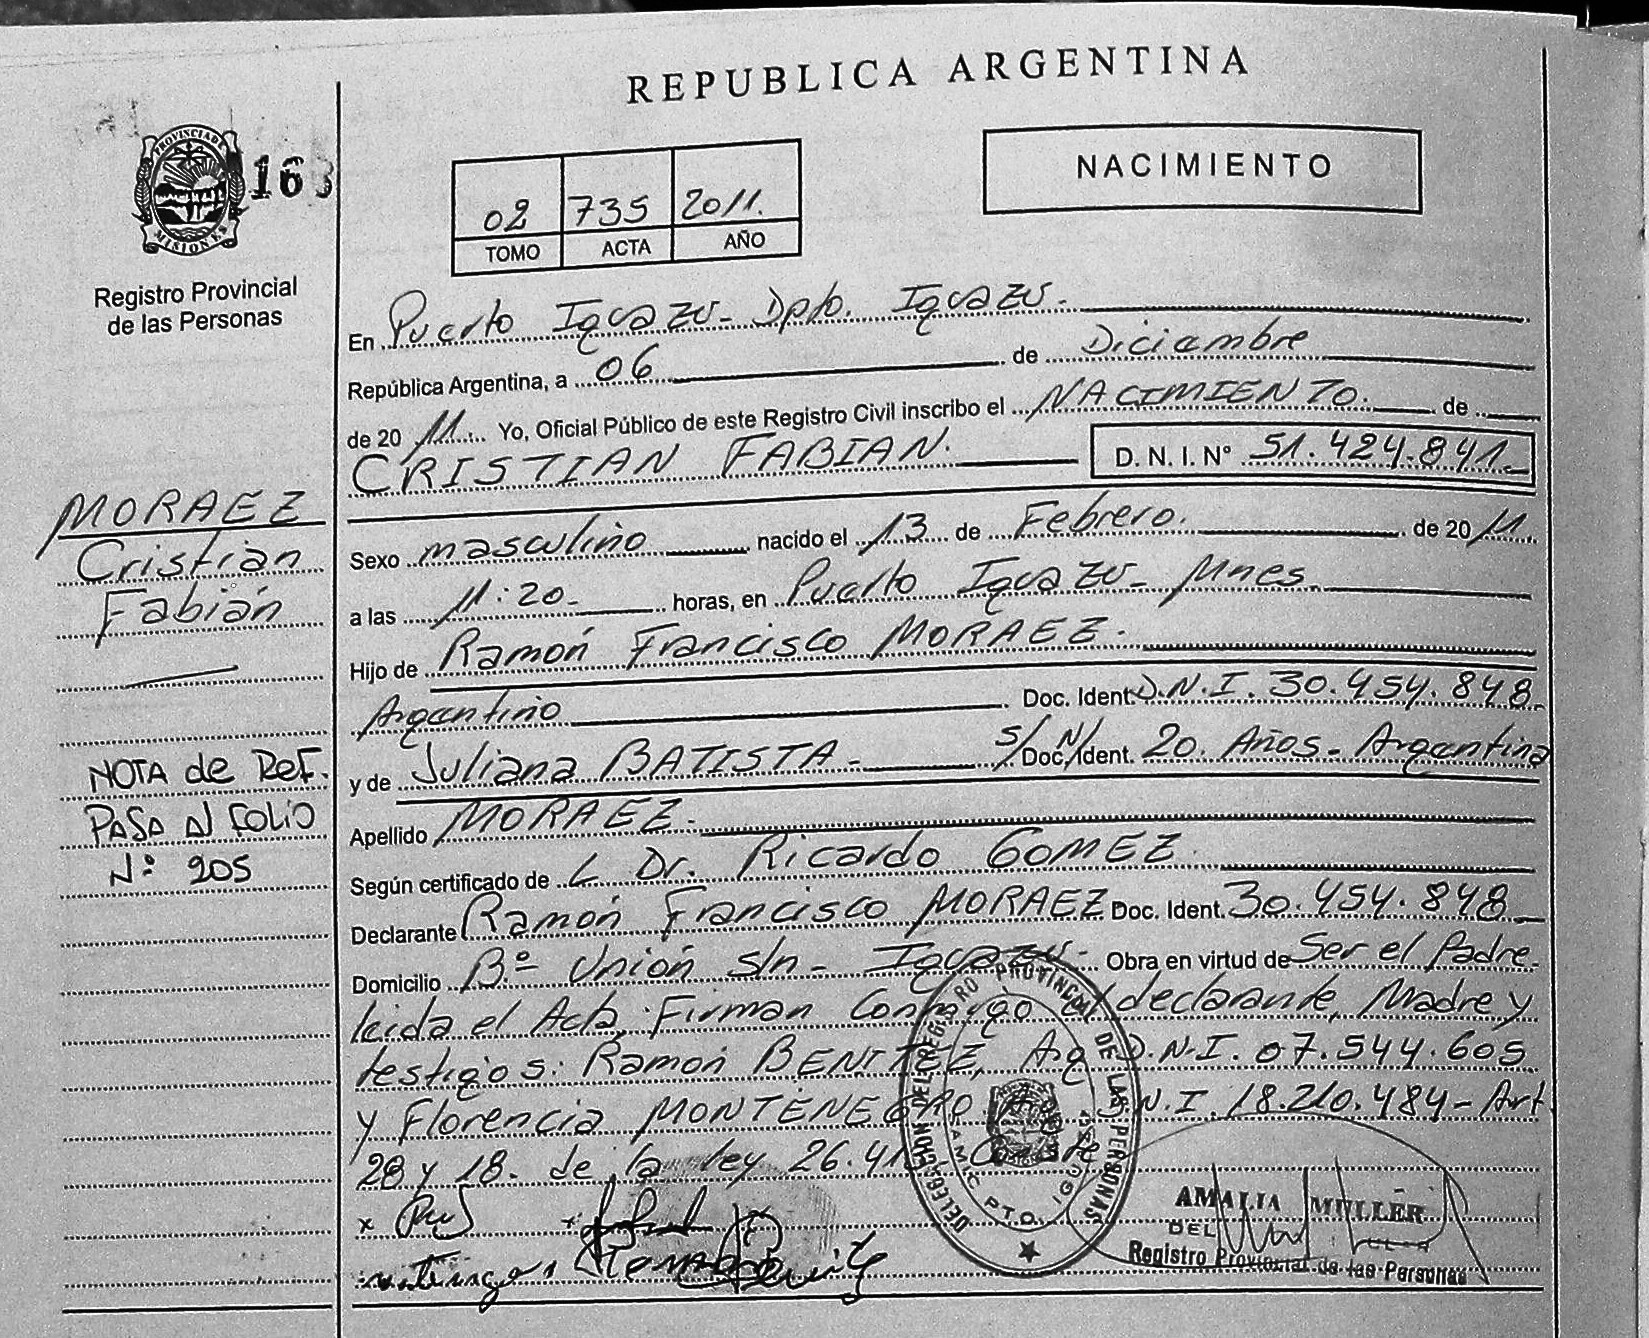 REPUBLICA ARGENTINA
NACIMIENTO
PROVINCIA DE
MISIONES
16
Registro Provincial
de las Personas
02 735 2011.
TOMO ACTA AÑO
En Puerto Iguazu - Dpto. Iguazu.-
República Argentina, a 06 de Diciembre
de 20 11 Yo, Oficial Público de este Registro Civil inscribo el NACIMIENTO. de
CRISTIAN FABIAN. D. N. I. Nº 51.424.841.-
MORAEZ
Cristian
Fabián
Sexo masculino nacido el 13 de Febrero. de 20 11
a las 11:20- horas, en Puerto Iguazu - Mnes.
Hijo de Ramón Francisco MORAEZ.
Argentino Doc. Ident. D.N.I. 30.454.848
y de Juliana BATISTA- S/Doc. N/Ident. 20. Años - Argentina
Apellido MORAEZ.
Según certificado de L Dr. Ricardo GOMEZ.
Declarante Ramón Francisco MORAEZ Doc. Ident. 30.454.848
Domicilio Bº Unión s/n - Iguazu.- Obra en virtud de Ser el Padre.
leida el Acta, Firman Conmigo el declarante, Madre y
testigos: Ramón BENITEZ, Arg D.N.I. 07.544.605
y Florencia MONTENEGRO. D.N.I. 18.210.484 - Art.
28 y 18. de la ley 26.41
NOTA de REF.
PASA Al FOLIO
Nº 205
DELEGACION DEL REGISTRO PROVINCIAL DE LAS PERSONAS
PTO. IGUAZU
AMALIA MULLER
DEL
Registro Provincial de las Personas